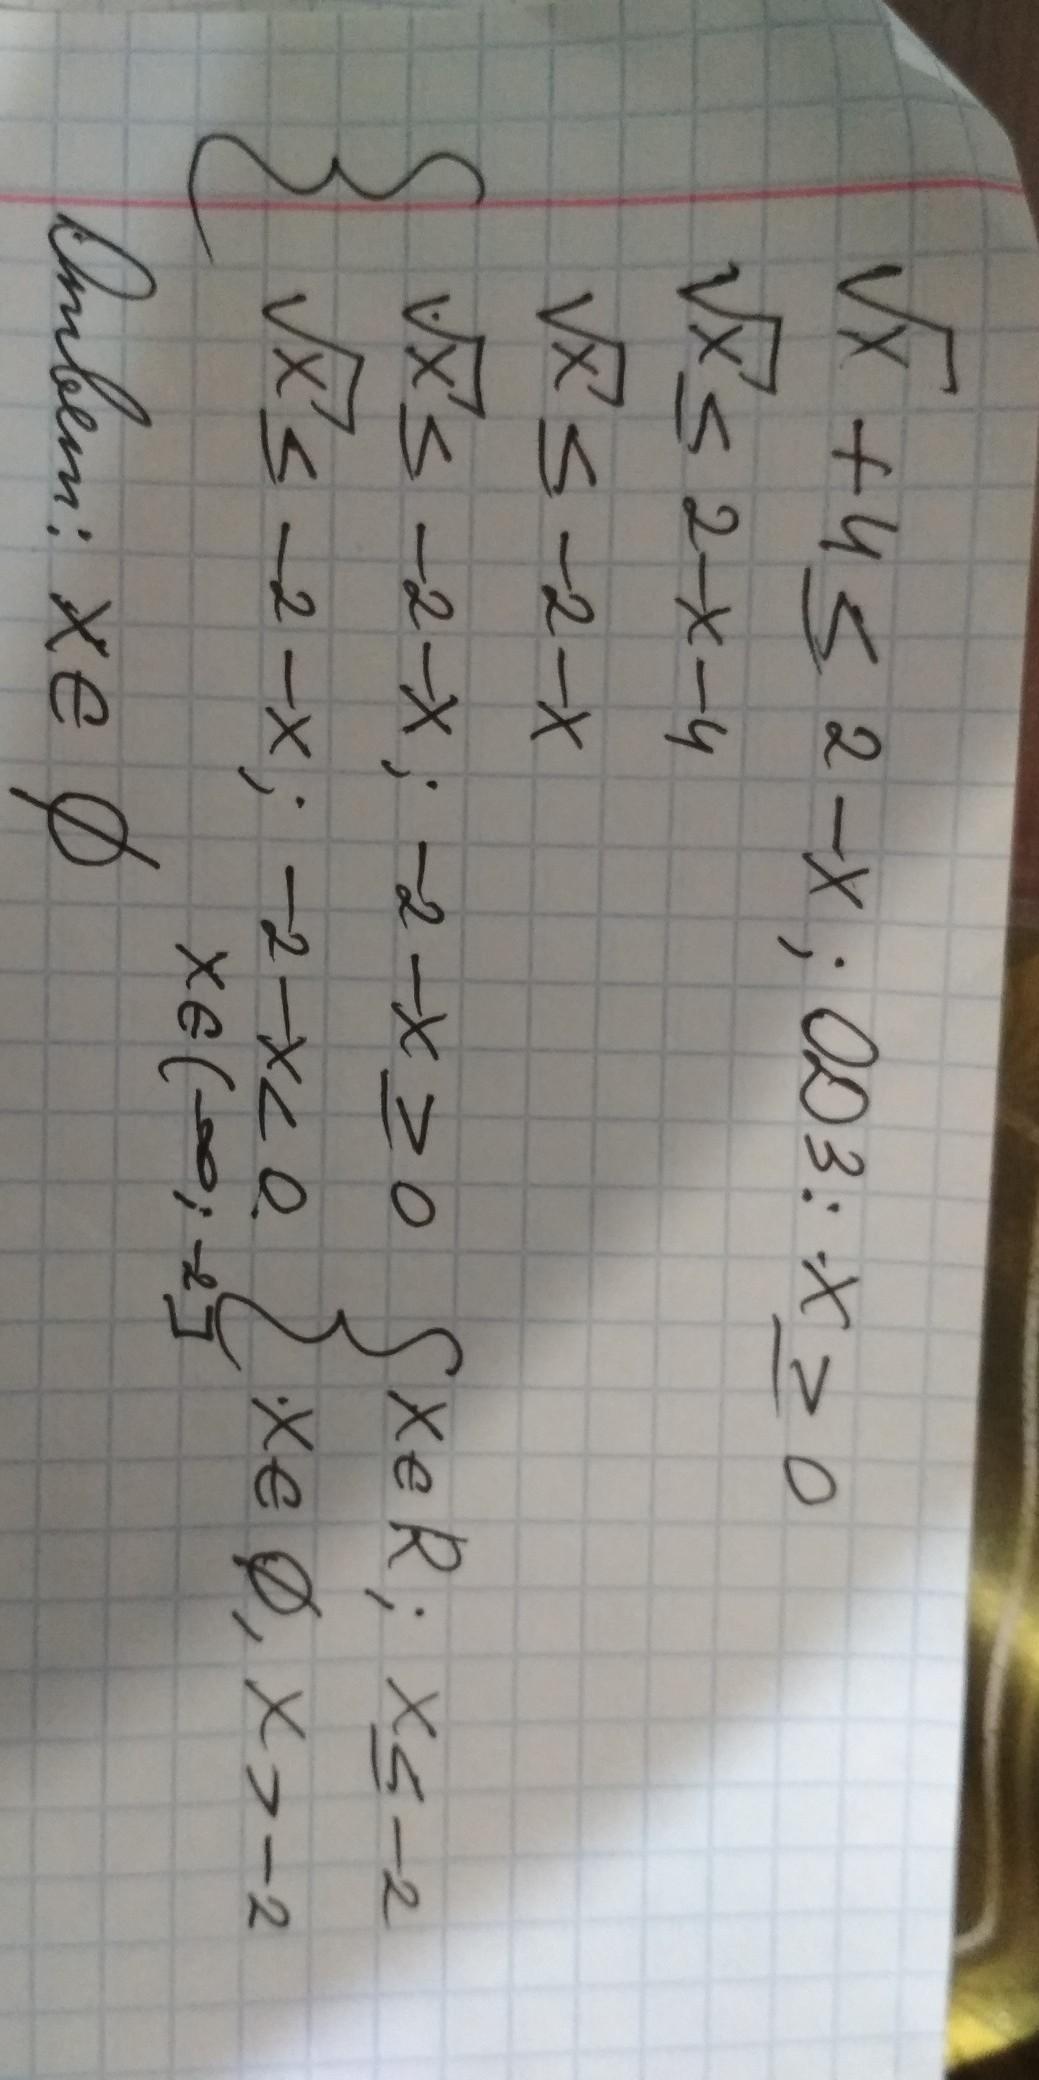 √x + 4 ≤ 2 - x; ОДЗ: x ≥ 0
√x ≤ 2 - x - 4
√x ≤ -2 - x
{ √x ≤ -2 - x; -2 - x ≥ 0 { x ∈ R; x ≤ -2
√x ≤ -2 - x; -2 - x < 0 x ∈ ∅, x > -2
x ∈ (-∞; -2]
Ответ: x ∈ ∅